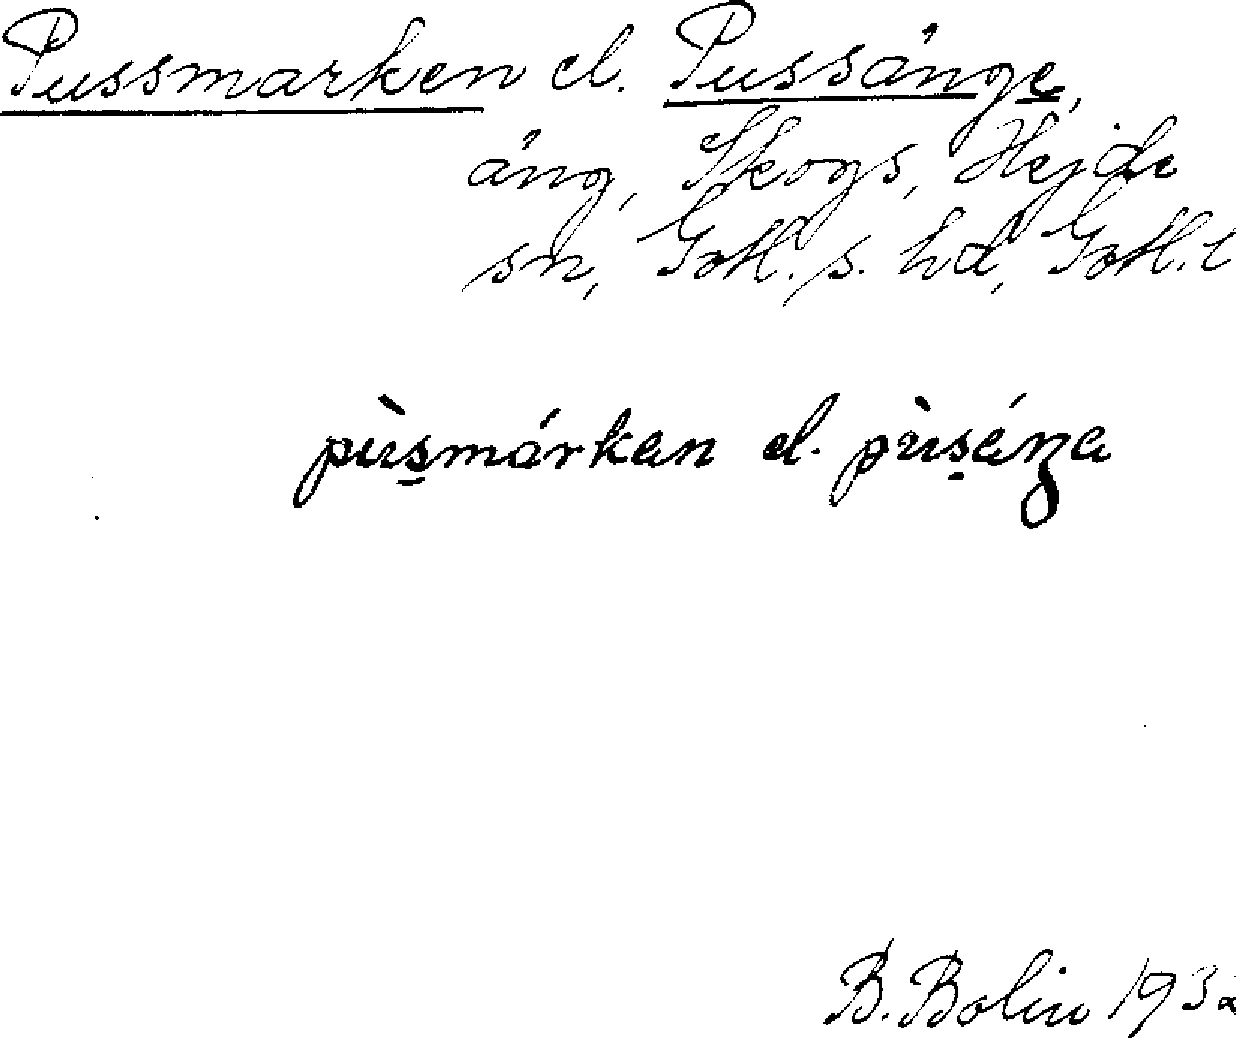 Pussmarken el. Pussänge,
äng, Skogs, Hejde
sn, Gotl. s. hd, Gotl. l
pùs̱márkan el. pùs̱áŋa
B. Bolin 1932